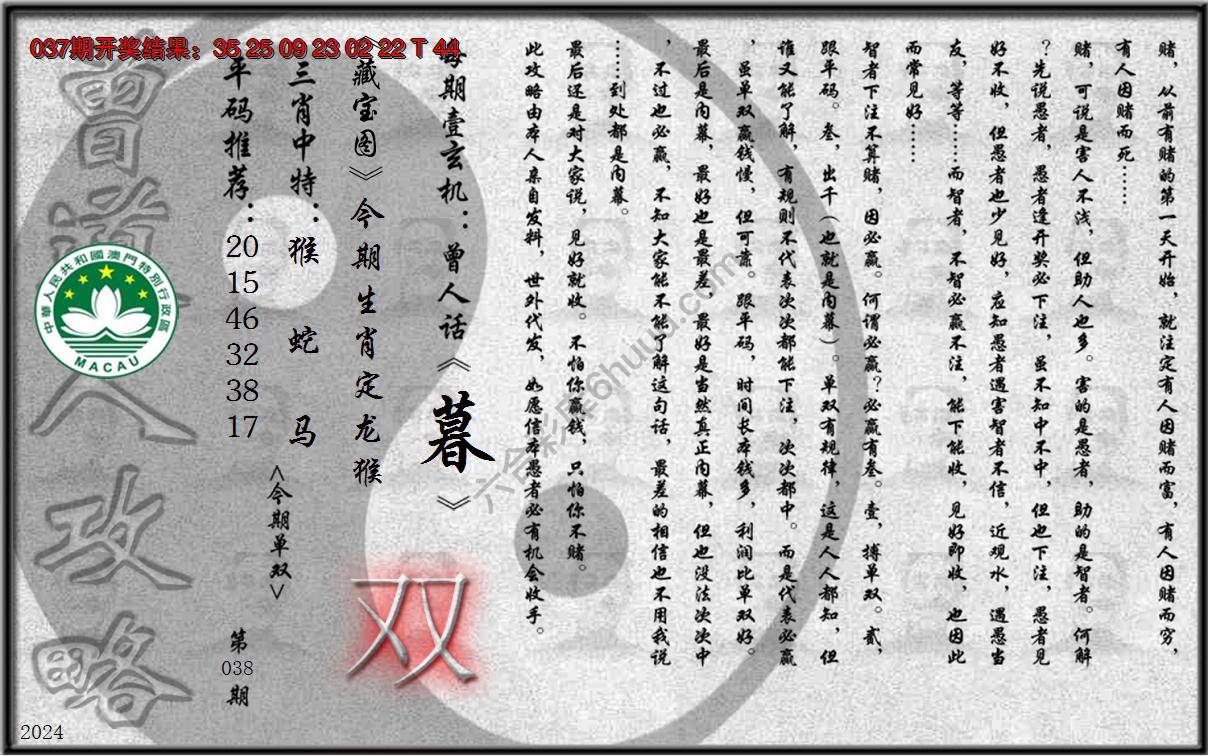 037期开奖结果：35 25 09 23 02 22 T 44
赌，从前有赌的第一天开始，就注定有人因赌而富，有人因赌而穷，
有人因赌而死……
赌，可说是害人不浅，但助人也多。害的是愚者，助的是智者。何解
？先说愚者，愚者逢开奖必下注，虽不知中不中，但也下注，愚者见
好不收，但愚者也少见好，应知愚者遇害智者不信，近观水，遇愚当
友，等等……而智者，不智必赢不注，能下能收，见好即收，也因此
而常见好……
智者下注不算赌，因必赢。何谓必赢？必赢有叁。壹，搏单双。贰，
跟平码。叁，出千（也就是内幕）。单双有规律，这是人人都知，但
谁又能了解，有规则不代表次次都能下注，次次都中。而是代表必赢
，虽单双赢钱慢，但可靠。跟平码，时间长本钱多，利润比单双好。
最后是内幕，最好也是最差，最好是当然真正内幕，但也没法次次中
，不过也必赢，不知大家能不能了解这句话，最差的相信也不用我说
……到处都是内幕。
最后还是对大家说，见好就收。不怕你赢钱，只怕你不赌。
此攻略由本人亲自发料，世外代发，如愿信本愚者必有机会收手。
每期壹玄机：曾人话《暮》
《藏宝图》今期生肖定龙猴
三肖中特：猴 蛇 马
<今期单双>
双
平码推荐：20 15 46 32 38 17
第038期
曾道人攻略
中華人民共和國澳門特別行政區
MACAU
六合彩库6huuu.com
2024